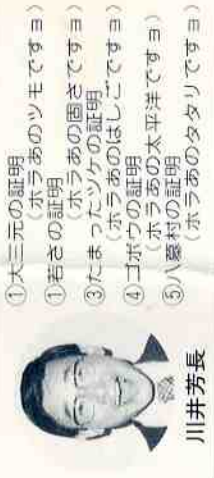 ①大三元の証明
（ホラあのツモですョ）
①若さの証明
（ホラあの固さですョ）
③たまったツケの証明
（ホラあのはしごですョ）
④ゴボウの証明
（ホラあの太平洋ですョ）
⑤八墓村の証明
（ホラあのタタリですョ）
川井芳長